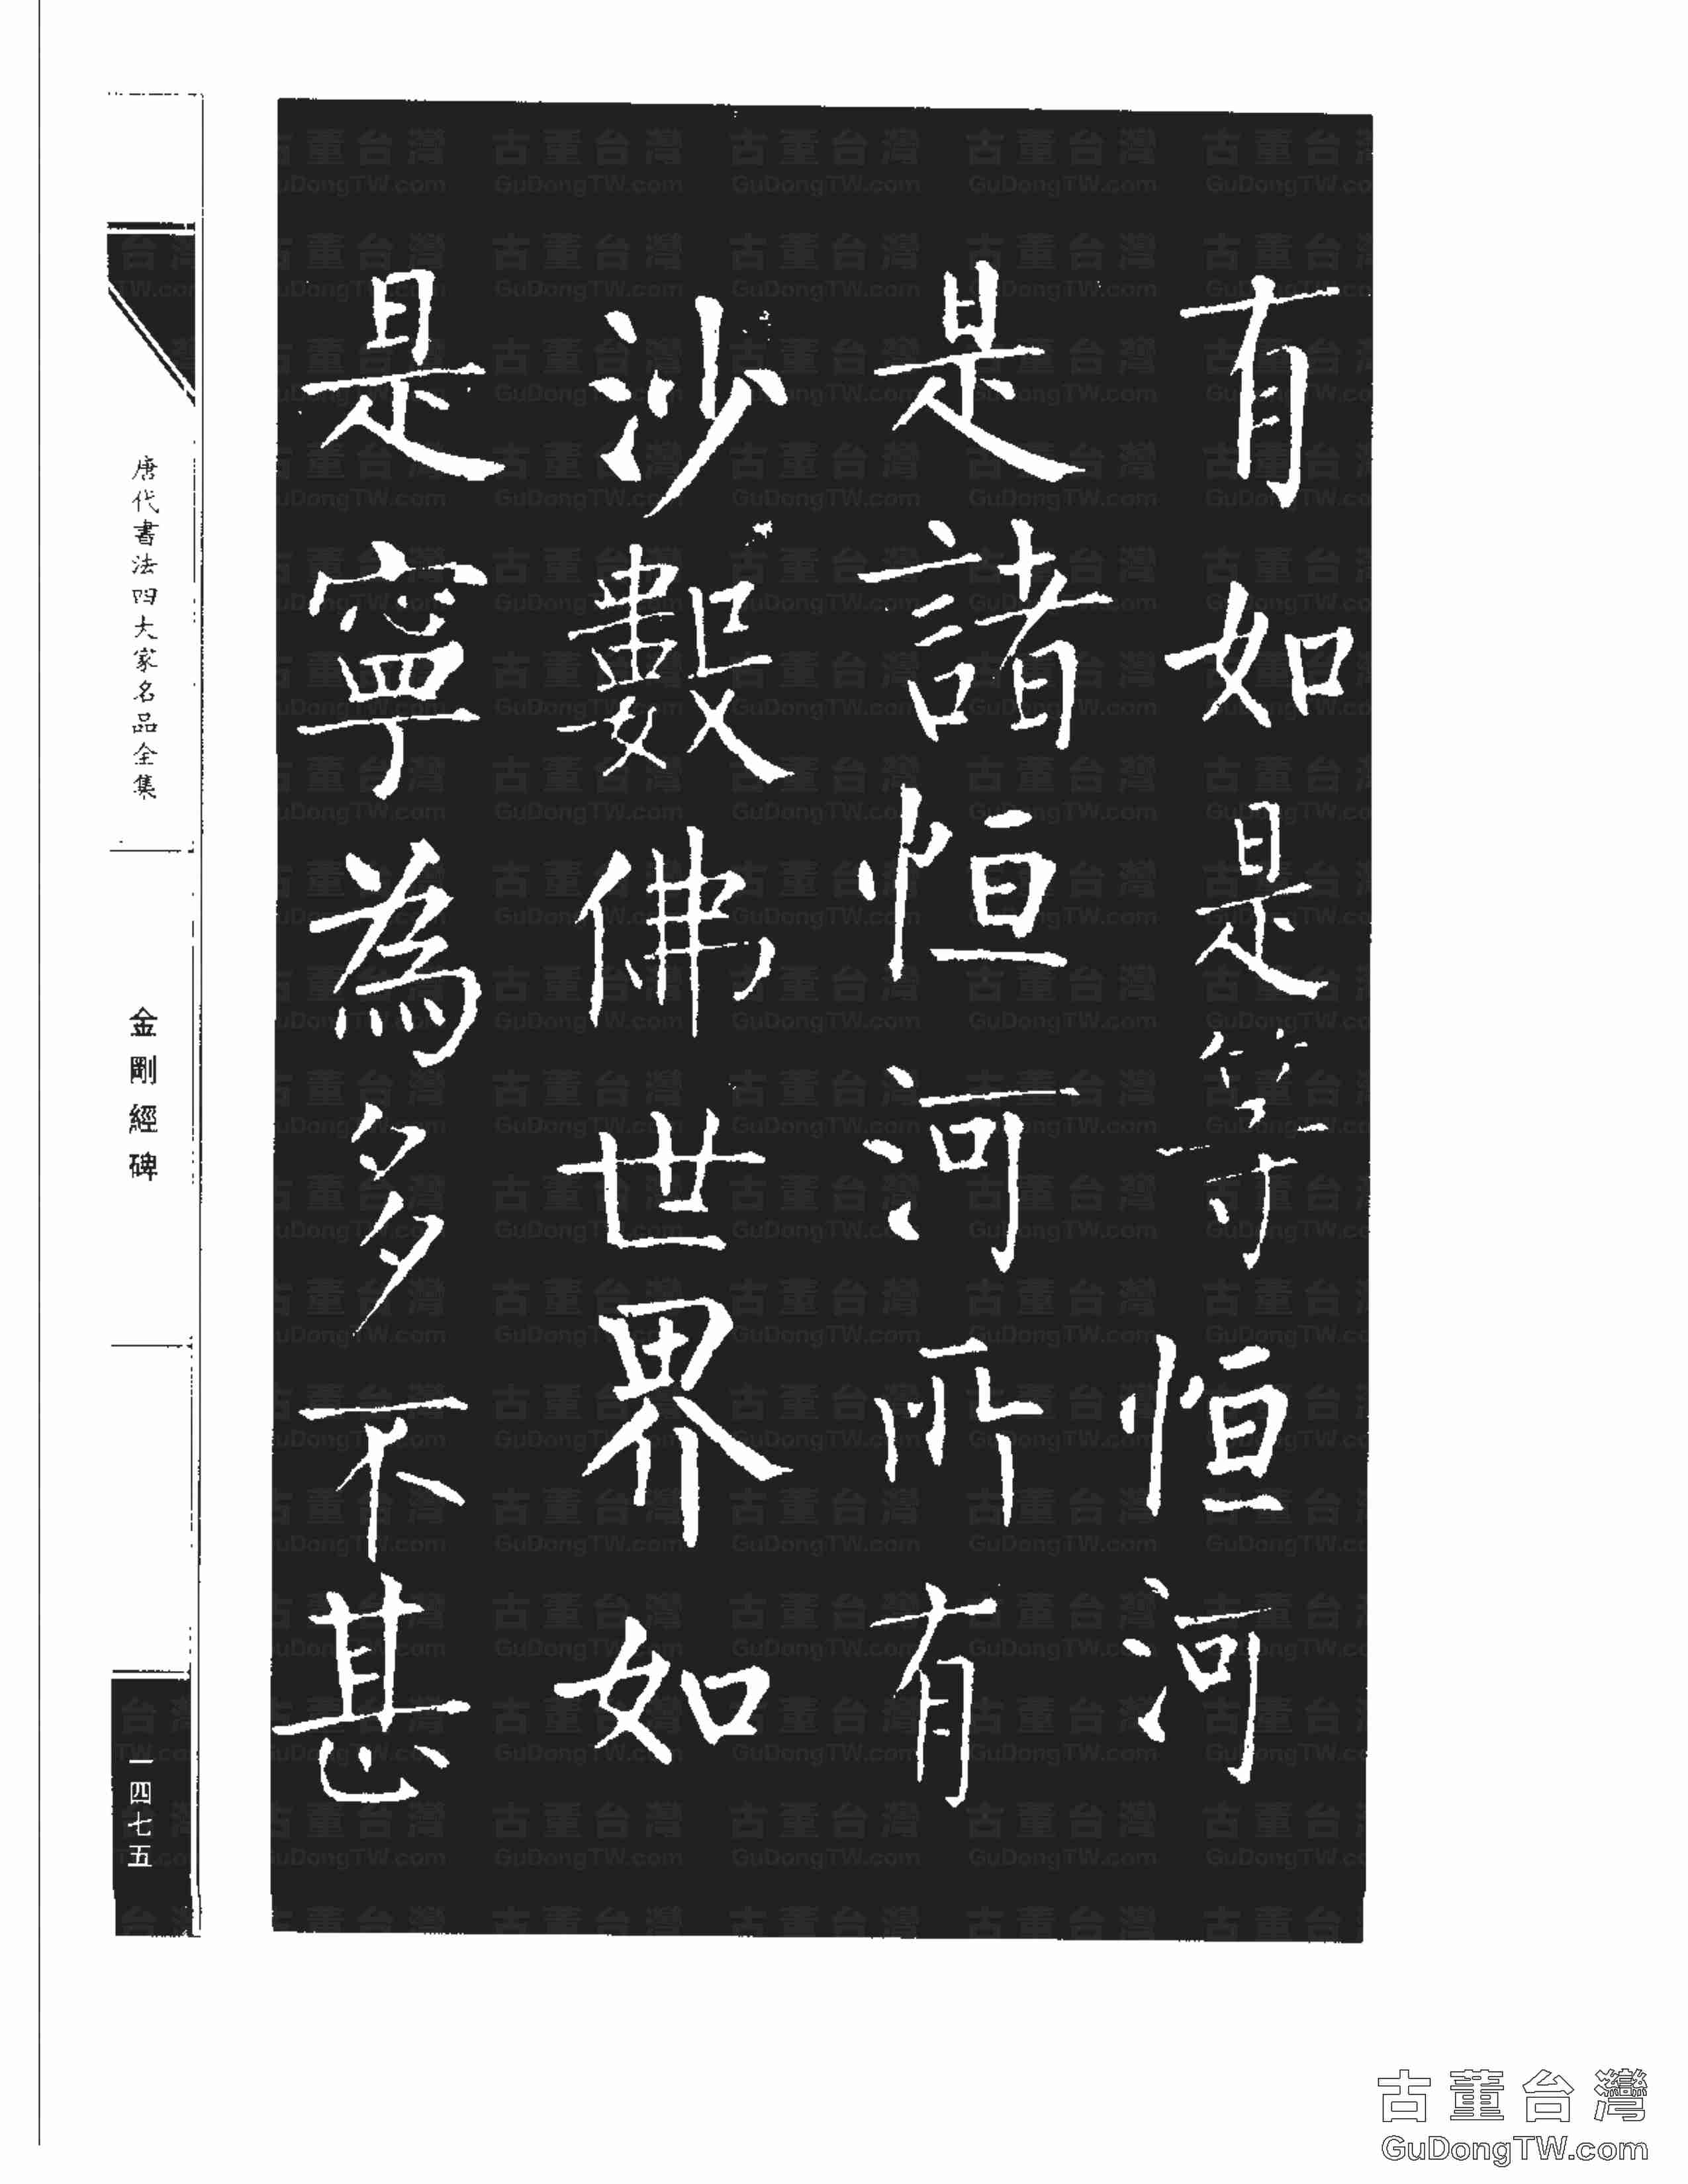 有如是等恒河
是諸恒河所有
沙數佛世界如
是寧為多不甚
唐代書法四大家名品全集
金剛經碑
一四七五
古董台灣
GuDongTW.com